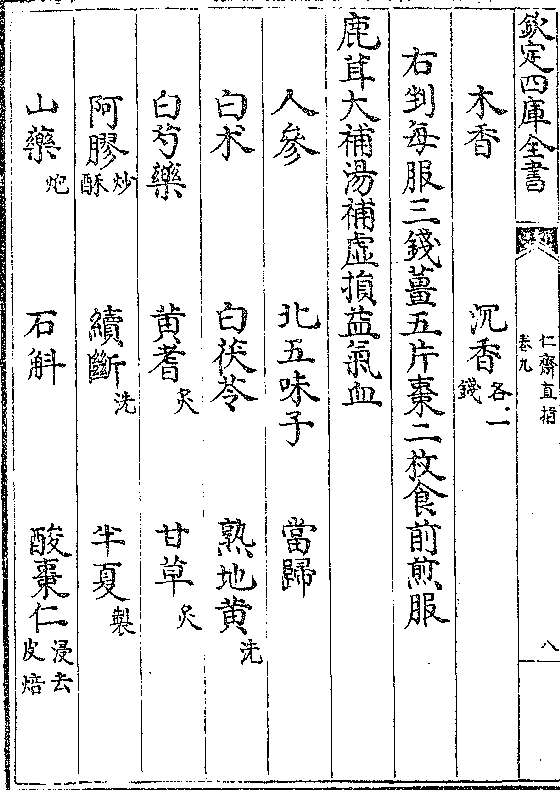 欽定四庫全書
仁齋直指
卷九
八
木香 沉香各一錢
右剉每服三錢薑五片棗二枚食前煎服
鹿茸大補湯補虛損益氣血
人參 北五味子 當歸
白朮 白茯苓 熟地黄洗
白芍藥 黄耆炙 甘草炙
阿膠炒酥 續斷洗 半夏製
山藥炮 石斛 酸棗仁浸去皮焙